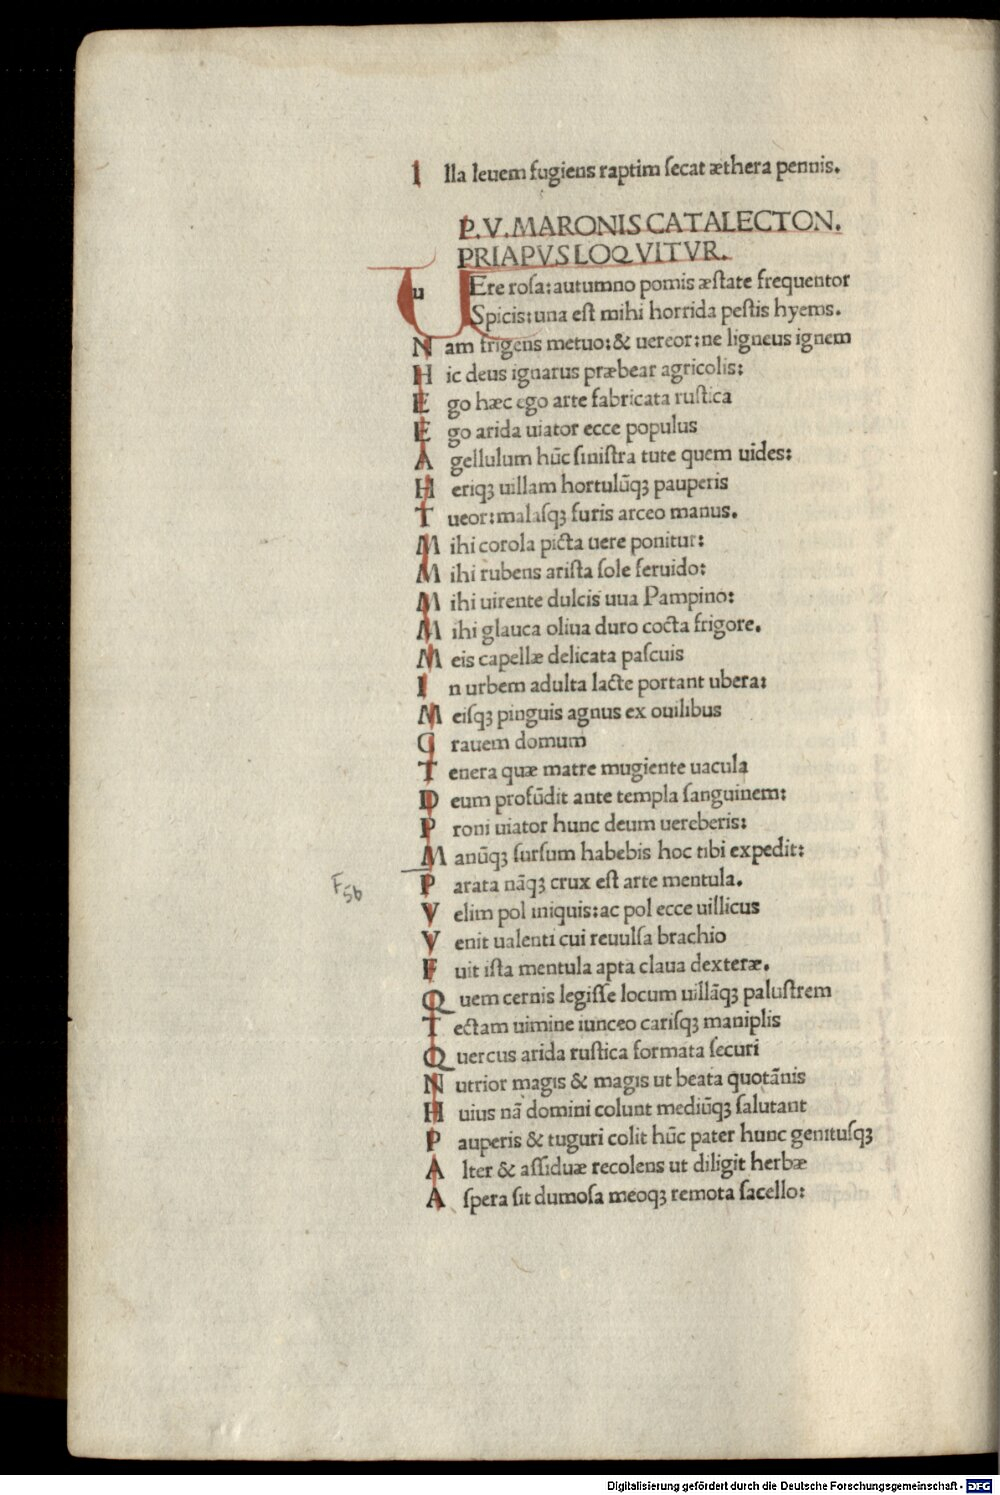 I lla leuem fugiens raptim ſecat æthera pennis.
P. V. MARONIS CATALECTON.
PRIAPVS LOQVITVR.
u Ere roſa: autumno pomis æſtate frequentor
Spicis: una eſt mihi horrida peſtis hyems.
N am frigens metuo: & uereor: ne ligneus ignem
H ic deus ignarus præbear agricolis:
E go hæc ego arte fabricata ruſtica
E go arida uiator ecce populus
A gellulum hūc ſiniſtra tute quem uides:
H eriqꝫ uillam hortulūqꝫ pauperis
T ueor: malaſqꝫ furis arceo manus.
M ihi corola picta uere ponitur:
M ihi rubens ariſta ſole feruido:
M ihi uirente dulcis uua Pampino:
M ihi glauca oliua duro cocta frigore.
M eis capellæ delicata paſcuis
I n urbem adulta lacte portant ubera:
M eiſqꝫ pinguis agnus ex ouilibus
G rauem domum
T enera quæ matre mugiente uacula
D eum profūdit ante templa ſanguinem:
P roni uiator hunc deum uereberis:
M anūqꝫ ſurſum habebis hoc tibi expedit:
P arata nāqꝫ crux eſt arte mentula.
V elim pol iniquis: ac pol ecce uillicus
V enit ualenti cui reuulſa brachio
F uit iſta mentula apta claua dexteræ.
Q uem cernis legiſſe locum uillāqꝫ paluſtrem
T ectam uimine iunceo cariſqꝫ maniplis
Q uercus arida ruſtica formata ſecuri
N utrior magis & magis ut beata quotānis
H uius nā domini colunt mediūqꝫ ſalutant
P auperis & tuguri colit hūc pater hunc genituſqꝫ
A lter & aſſiduæ recolens ut diligit herbæ
A ſpera ſit dumoſa meoqꝫ remota ſacello:
F 5b
Digitalisierung gefördert durch die Deutsche Forschungsgemeinschaft - DFG